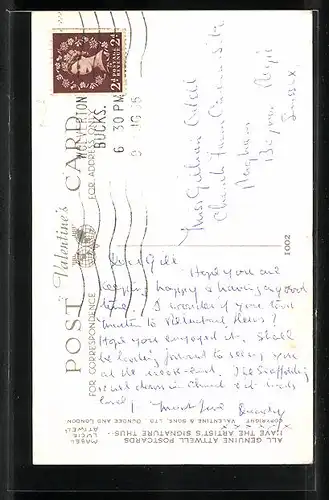 POST CARD
Valentine's
FOR CORRESPONDENCE
FOR ADDRESS ONLY
2½d POSTAGE REVENUE 2½d
WOLVERTON
BUCKS.
6 30 PM
Miss Gillian
Church Farm
Pagham
Bognor Regis
Sussex
1002
Dear Gill
Hope you are
keeping happy & having a good
time. I wonder if you took
to
Hope you enjoyed it. Shall
be looking forward to seeing you
at the week-end. The Scaffolding
is down in Church &
level! Much love
x x x x
ALL GENUINE ATTWELL POSTCARDS
HAVE THE ARTIST'S SIGNATURE THUS:-
MABEL
LUCIE
ATTWELL
COPYRIGHT VALENTINE & SONS, LTD. DUNDEE AND LONDON